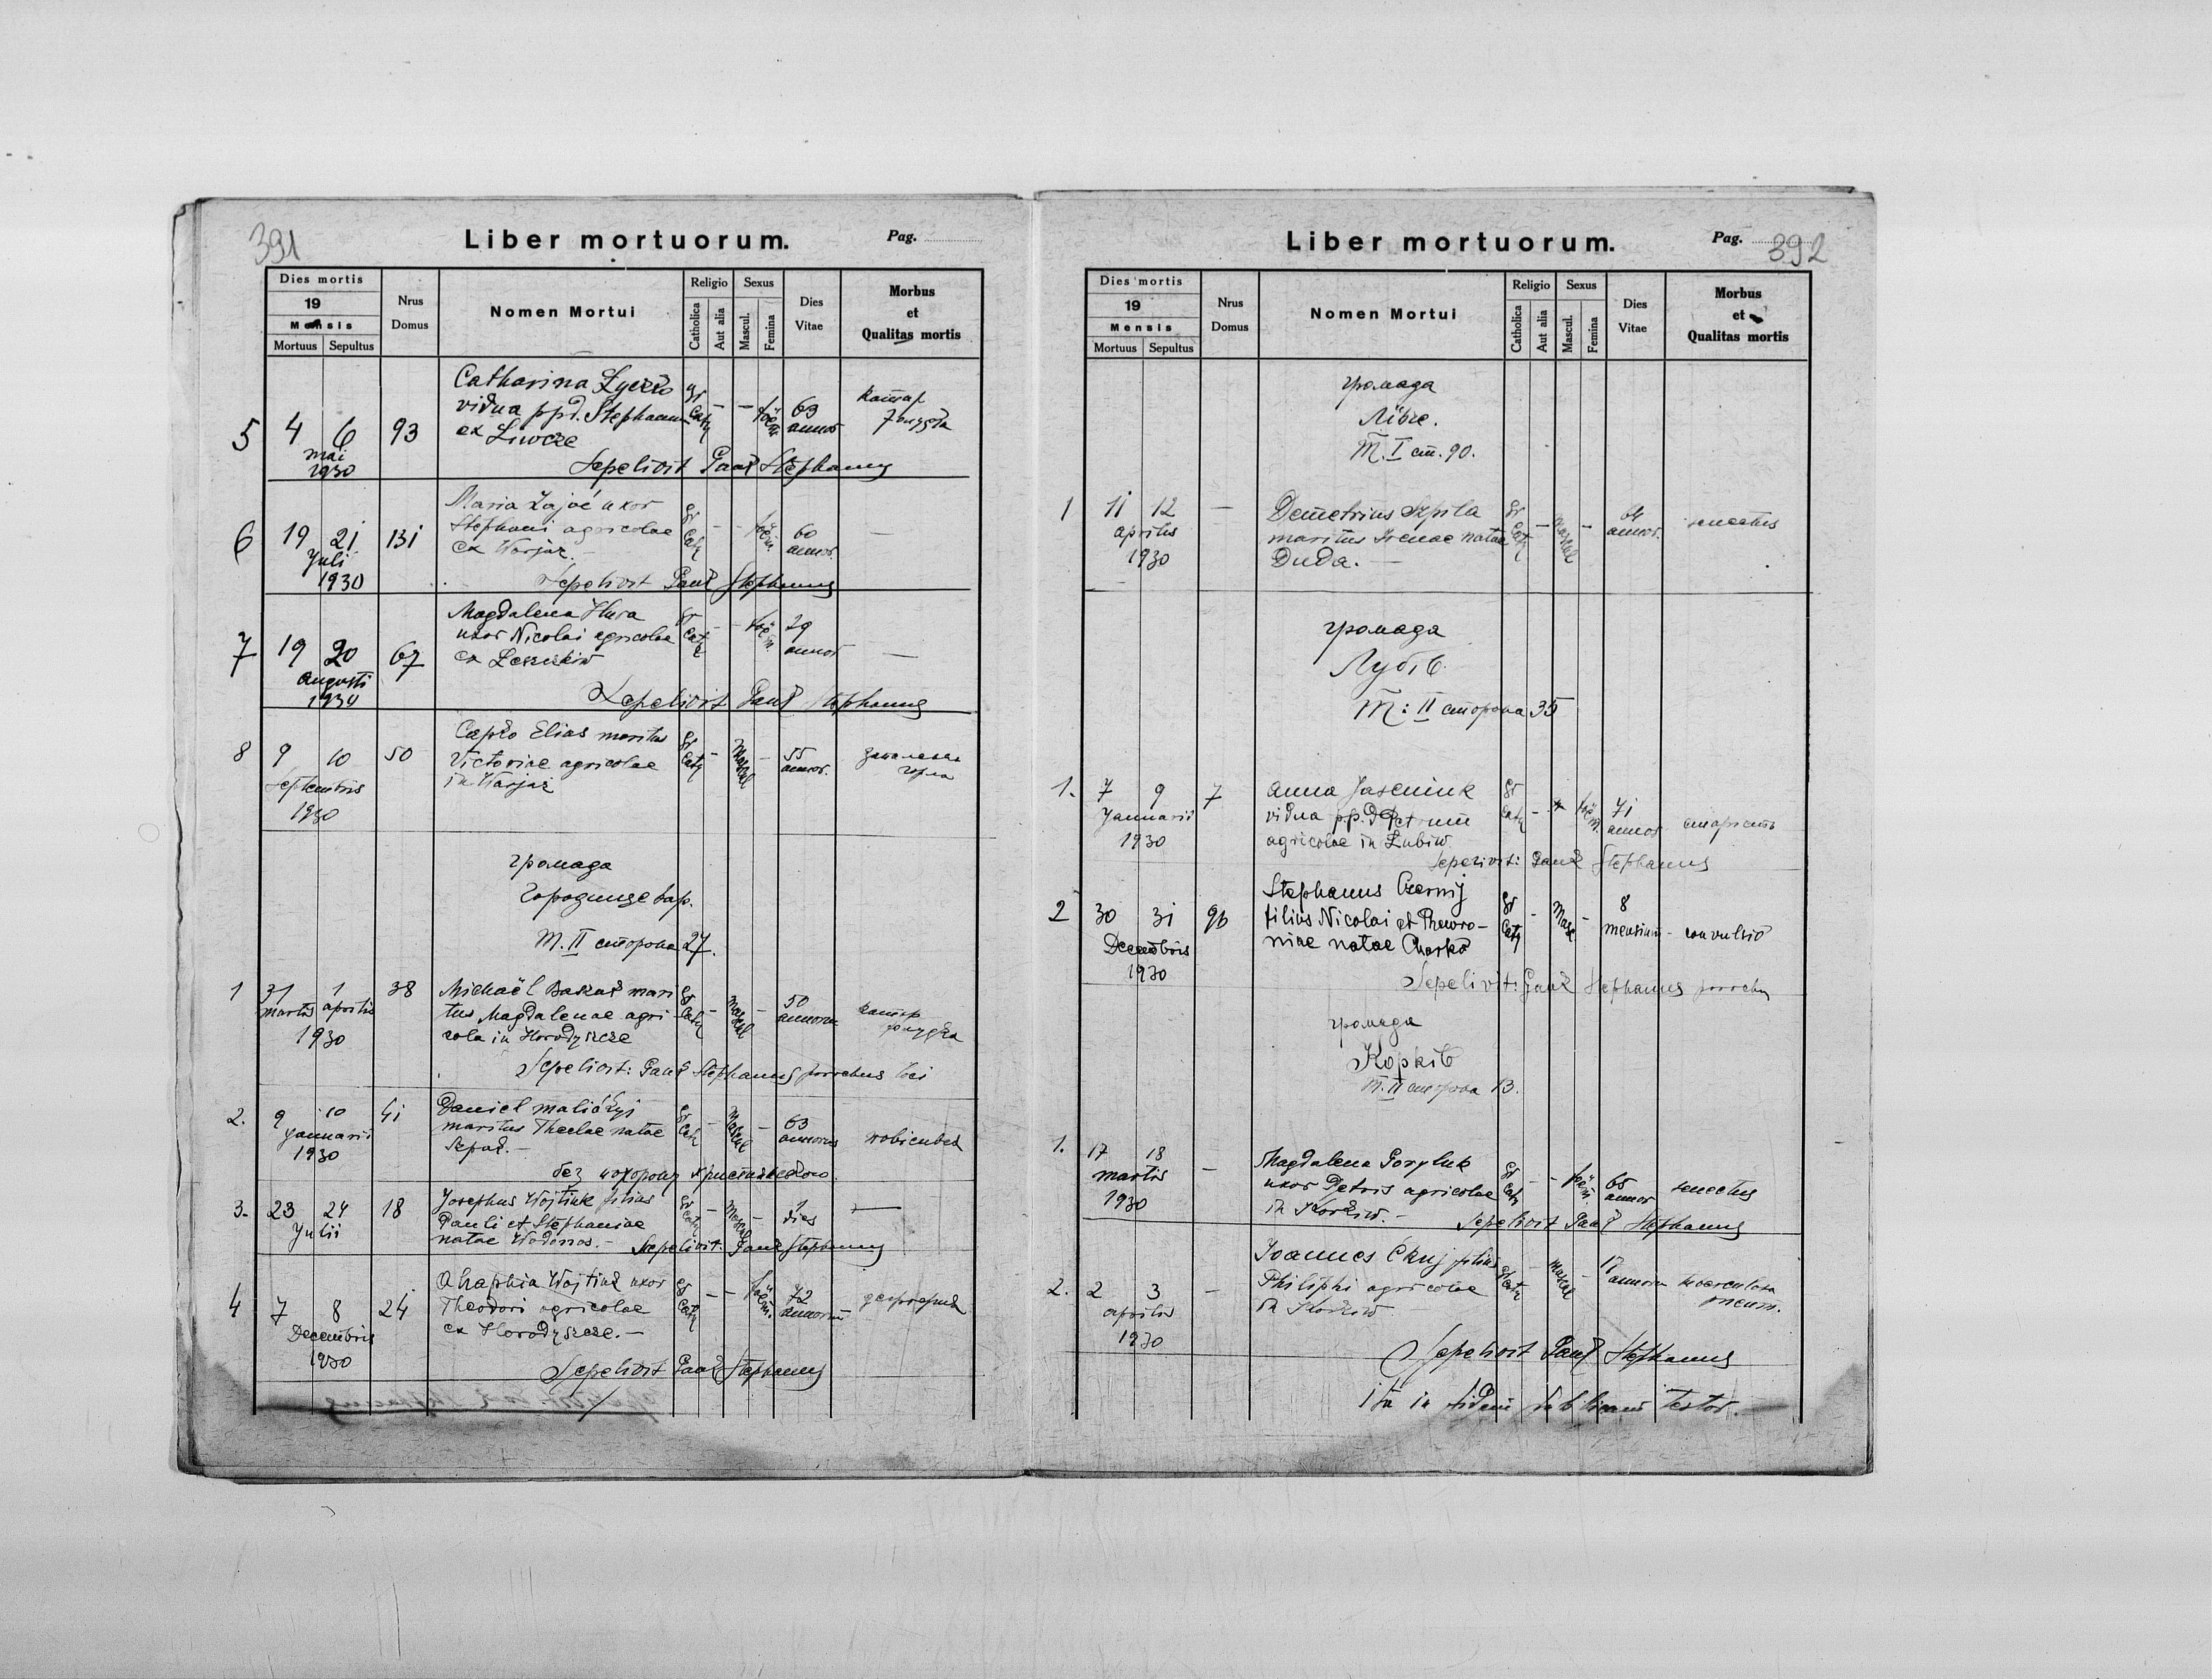 391
Liber mortuorum.
Pag.
Dies mortis
19
Mensis
Mortuus Sepultus
Nrus Domus
Nomen Mortui
Religio
Catholica
Aut alia
Sexus
Mascul.
Femina
Dies Vitae
Morbus et Qualitas mortis
5 4 6 mai 1930 93
Catharina
vidua ppd. Stephanum
ex Liwcze
Gr Cath - - foem. 69 annor
катар
Sepelivit Paar Stephanus
6 19 21 Juli 1930 131
Maria Zajać uxor
Stephani agricolae
ex Warjaz.
Gr Cath - - foem. 60 annor. —
Sepelivit Stephanus
7 19 20 augusti 1930 67
Magdalena Hura
uxor Nicolai agricolae
ex
Gr Cath - - foem. 29 annor —
Sepelivit Stephanus
8 9 10 Septembris 1930 50
Elias maritus
Victoriae agricolae
in Warjaz
Gr Cath - Mascul - 55 annor.
запалення горла
громада
Городище вар.
Т. II сторона 27.
1 31 martis 1 aprilis 1930 38
Michaël mari
tus Magdalenae agri-
cola in Horodyszcze
Gr Cath - mascul - 50 annorum
катар
Sepelivit: Stephanus parochus loci
2. 9 10 januarii 1930 41
Daniel
maritus Theclae natae
Gr Cath - Mascul - 63 annorum
без похорону
3. 23 24 Julii 18
Josephus Wojtiuk filius
Pauli et Stephaniae
natae Wodonos. -
Gr Cath - Mascul - 1 dies —
Sepelivit: Stephanus
4 7 8 Decembris 1930 24
Ahaphia uxor
Theodori agricolae
ex Horodyszcze. -
Gr Cath - - foem. 72 annorum
Sepelivit Stephanus
Liber mortuorum.
Pag. 392
Dies mortis
19
Mensis
Mortuus Sepultus
Nrus Domus
Nomen Mortui
Religio
Catholica
Aut alia
Sexus
Mascul.
Femina
Dies Vitae
Morbus et Qualitas mortis
громада
Лівче.
Т. I ст. 90.
1 11 12 aprilis 1930 —
Demetrius Szpila
maritus Irenae natae
Duda. —
Gr Cath - Mascul - 64 annor.
senectus
громада
Лубів
Т: II сторона 35
1. 7 9 Januarii 1930 7
Anna Jaseniuk
vidua p.p.d Petrum
agricolae in Lubiw.
Gr Cath - - foem. 71 annor
старість
Sepelivit: Stephanus
2 30 31 Decembris 1930 96
Stephanus Czornij
filius Nicolai et Thewro-
niae natae
Gr Cath - Masc - 8 mensium - convulsio
Sepelivit: Stephanus parochus
громада
Корків
Т. II сторона 13.
1. 17 18 martis 1930 —
Magdalena
uxor Petris agricolae
in Korkiw. -
Gr Cath - - foem. 65 annor
senectus
Sepelivit Stephanus
2. 2 3 aprilis 1930 —
Joannes filius
Philiphi agricolae
in Korkiw
Gr Cath - Mascul - 17 annorum
Sepelivit Stephanus
ita in fidem testor.